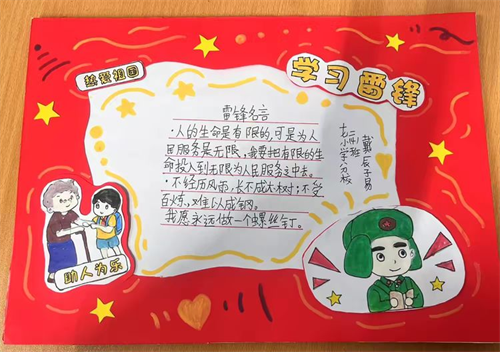 热爱祖国
学习雷锋
雷锋名言
·人的生命是有限的,可是为人
民服务是无限,要把有限的生
命投入到无限为人民服务之中去。
·不经历风雨,长不成大树;不受
百炼,难以成钢。
我愿永远做一个螺丝钉。
助人为乐